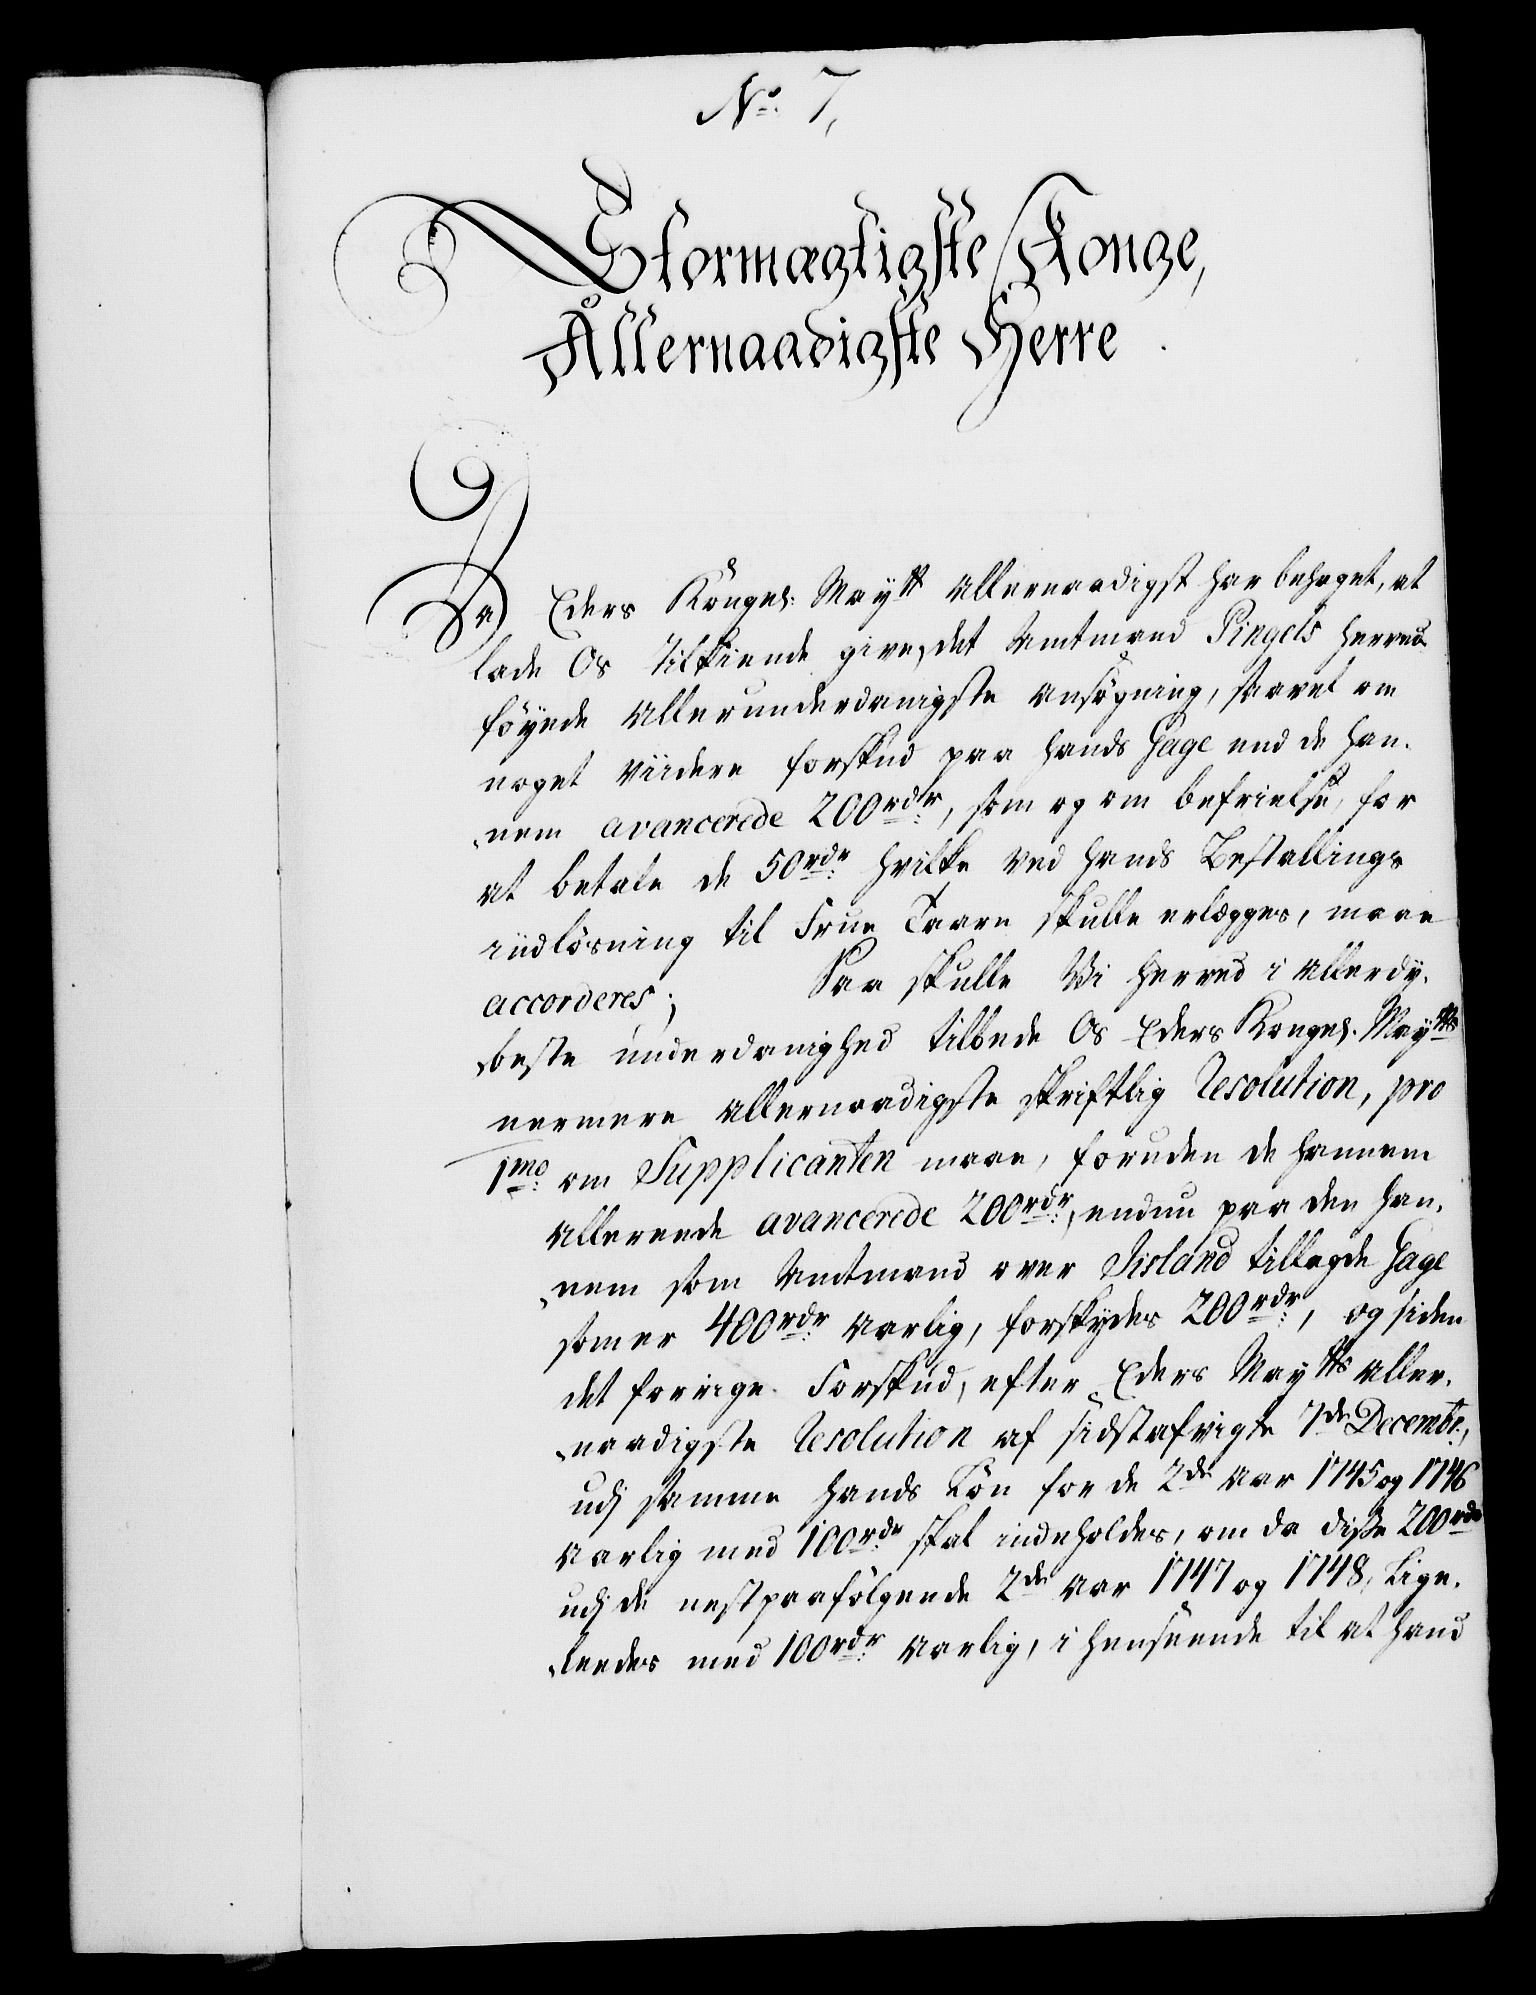 No. 7,
Stormægtigste Konge,
Allernaadigste Herre.
Da Eders Kongel: Maytt Allernaadigst har behaget, at
lade Os tilkiende give, det Amtmand Pingels herved
föyede Allerunderdanigste Ansøgning, saavel om
noget viidere forskud paa hands Gage end de han-
nem avancerede 200rdr, som og om befrielse, for
at betale de 50rdr hvilke ved hands Bestallings
iindlösning til Frue Taarn skulle erlægges, maae
accorderes; Saa skulle Vi herved i Allerdy-
beste underdanighed tilbede Os Eders Kongel. Maytts
neermere Allernaadigste skriftlig Resolution, pro
1mo om Supplicanten maae, foruden de hannem
Allereede avancerede 200rdr, endnu paa den han-
nem som Amtmand over Iisland tillagde Gage
som er 400rdr Aarlig, forskydes 200rdr, og siden
det forrige Forskud, efter Eders Maytts Aller-
naadigste Resolution af sidstafvigte 7de Decembr,
udj samme hands Lön for de 2de Aar 1745 og 1746
Aarlig med 100rdr skal indeholdes, om da disse 200rdr
udj de nestpaafölgende 2de Aar 1747 og 1748, Lige-
leedes med 100rdr Aarlig, i henseende til at hand